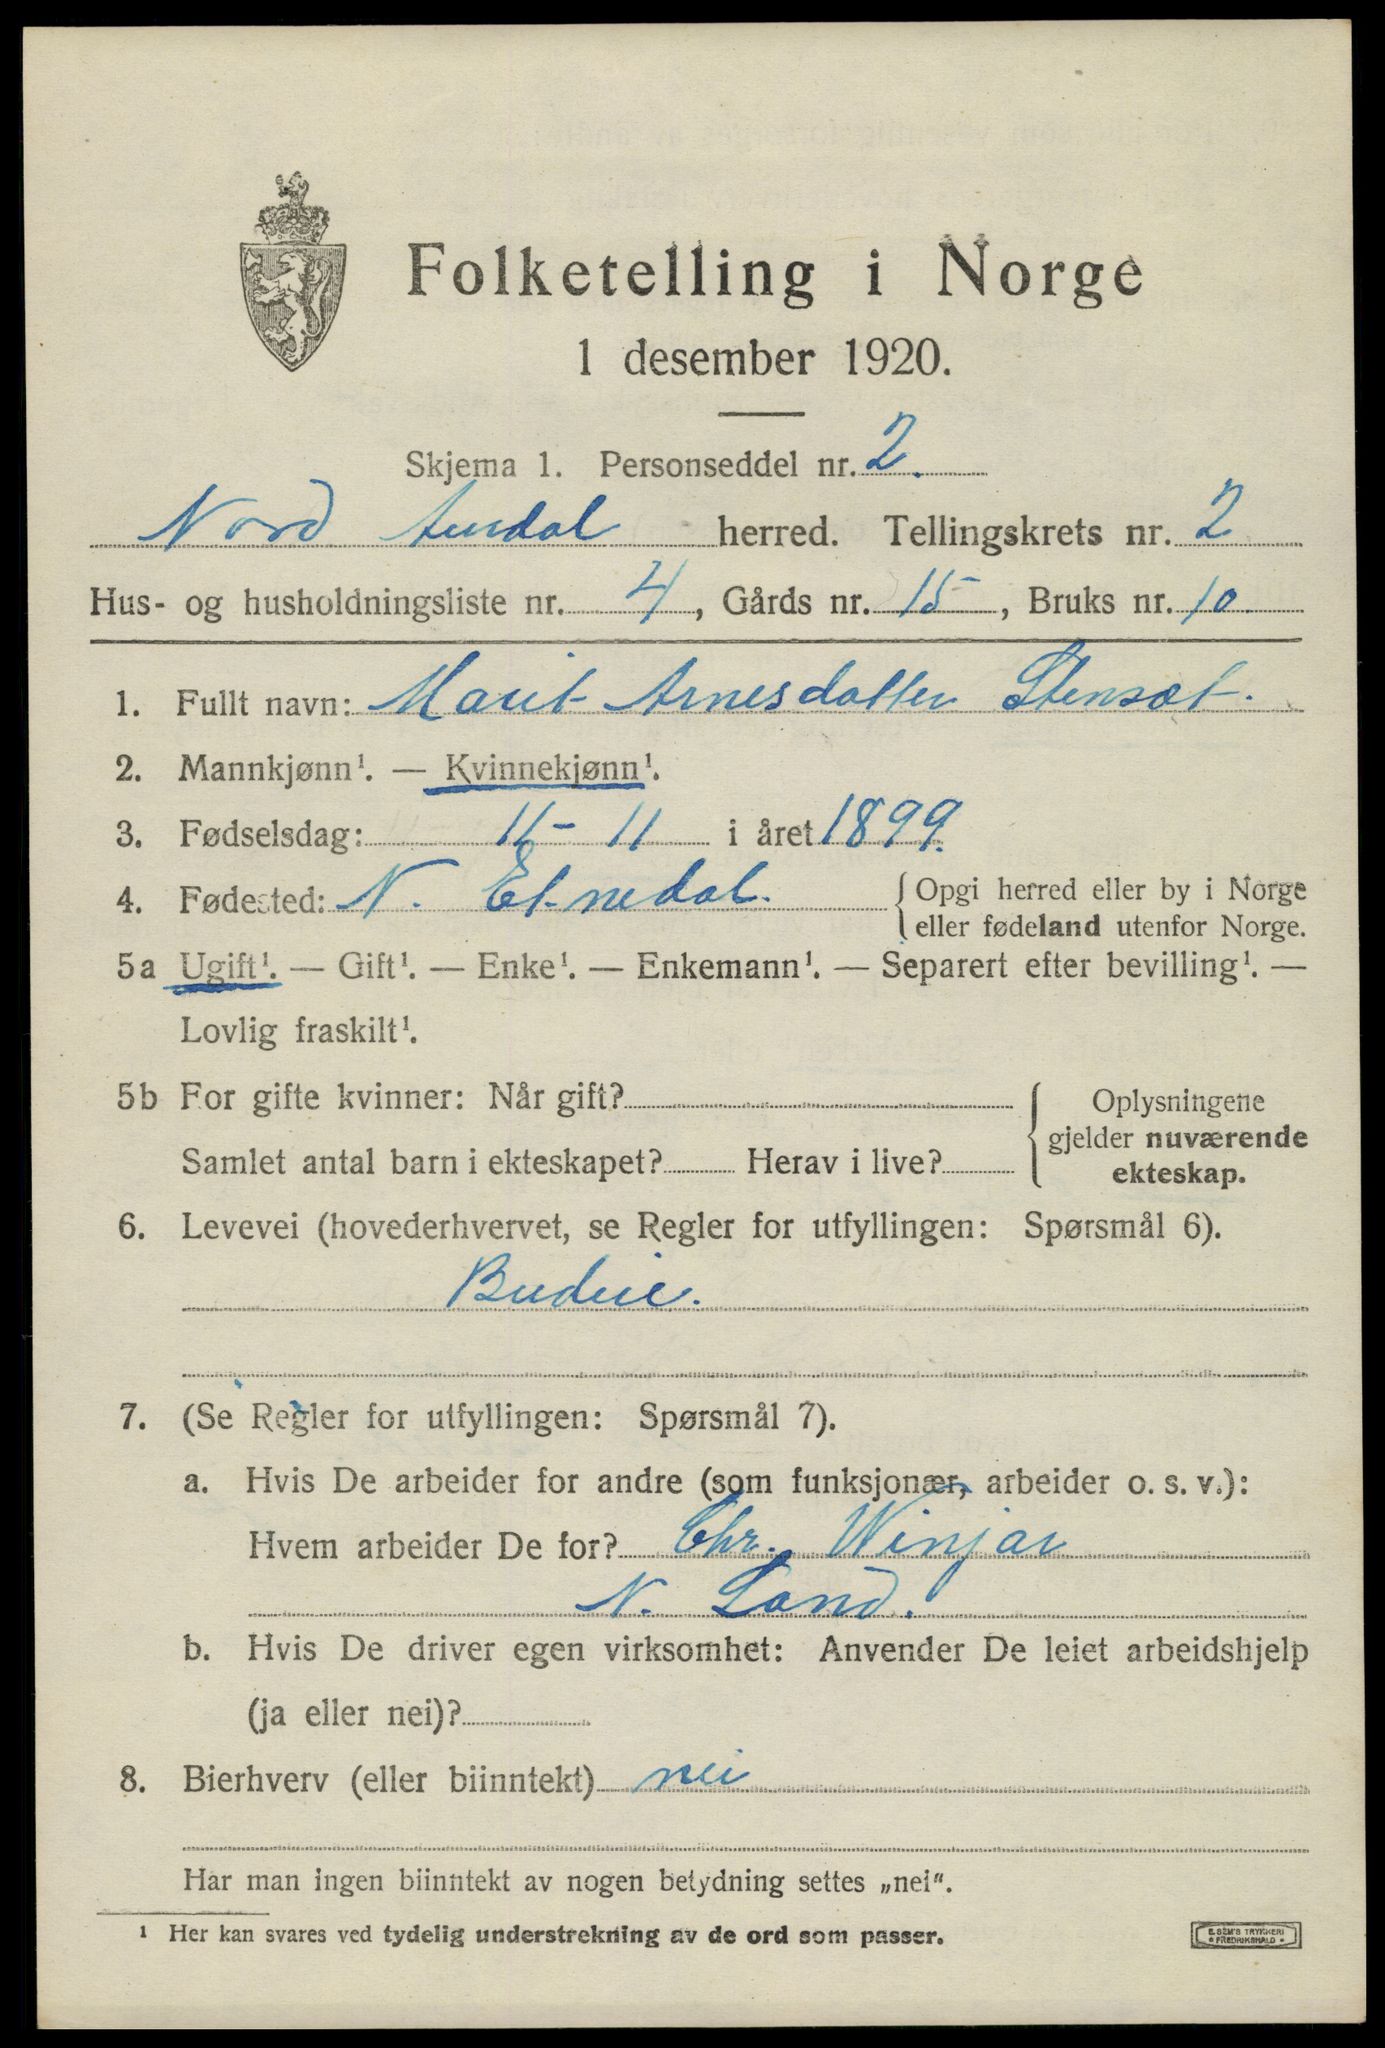 Folketelling i Norge
1 desember 1920.
Skjema 1. Personseddel nr. 2.
Nord Aurdal herred. Tellingskrets nr. 2
Hus- og husholdningsliste nr. 4, Gårds nr. 15, Bruks nr. 10.
1. Fullt navn: Marit Arnesdatter Stensæt.
2. Mannkjønn¹. — Kvinnekjønn¹.
3. Fødselsdag: 11 - 11 i året 1899.
4. Fødested: N. Etnedal. { Opgi herred eller by i Norge
eller fødeland utenfor Norge.
5a Ugift¹. — Gift¹. — Enke¹. — Enkemann¹. — Separert efter bevilling¹. —
Lovlig fraskilt¹.
5b For gifte kvinner: Når gift?
Samlet antal barn i ekteskapet? Herav i live?
Oplysningene
gjelder nuværende
ekteskap.
6. Levevei (hovederhvervet, se Regler for utfyllingen: Spørsmål 6).
Budeie.
7. (Se Regler for utfyllingen: Spørsmål 7).
a. Hvis De arbeider for andre (som funksjonær, arbeider o. s. v.):
Hvem arbeider De for? Chr. Winjar
N. Land.
b. Hvis De driver egen virksomhet: Anvender De leiet arbeidshjelp
(ja eller nei)?
8. Bierhverv (eller biinntekt) nei
Har man ingen biinntekt av nogen betydning settes „nei".
¹ Her kan svares ved tydelig understrekning av de ord som passer.
E. SEM'S TRYKKERI
FREDRIKSHALD